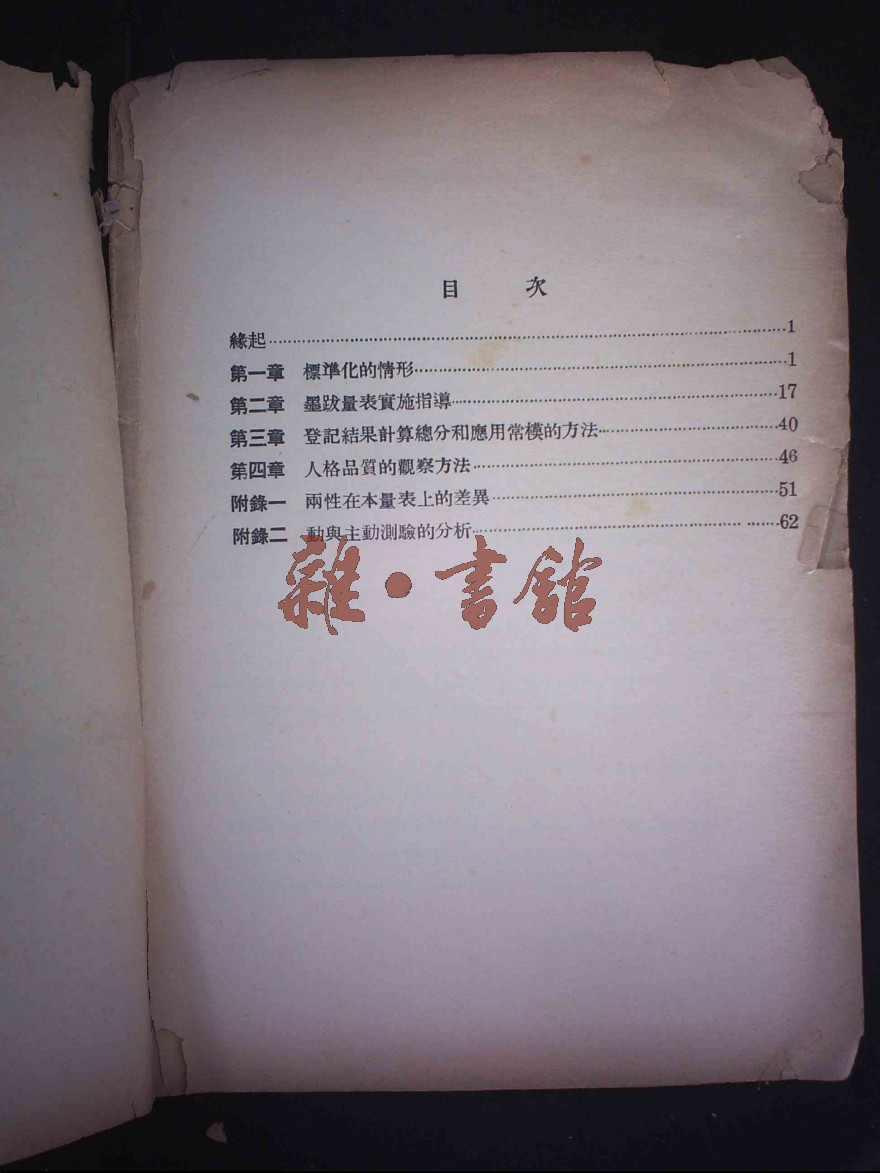 目 次
緣起……1
第一章 標準化的情形……1
第二章 墨跋量表實施指導……17
第三章 登記結果計算總分和應用常模的方法……40
第四章 人格品質的觀察方法……46
附錄一 兩性在本量表上的差異……51
附錄二 動與主動測驗的分析……62
雜·書館